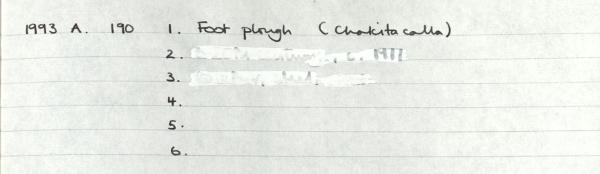 1993 A. 190 1. Foot plough (Chakitacalla)
2.
3.
4.
5.
6.